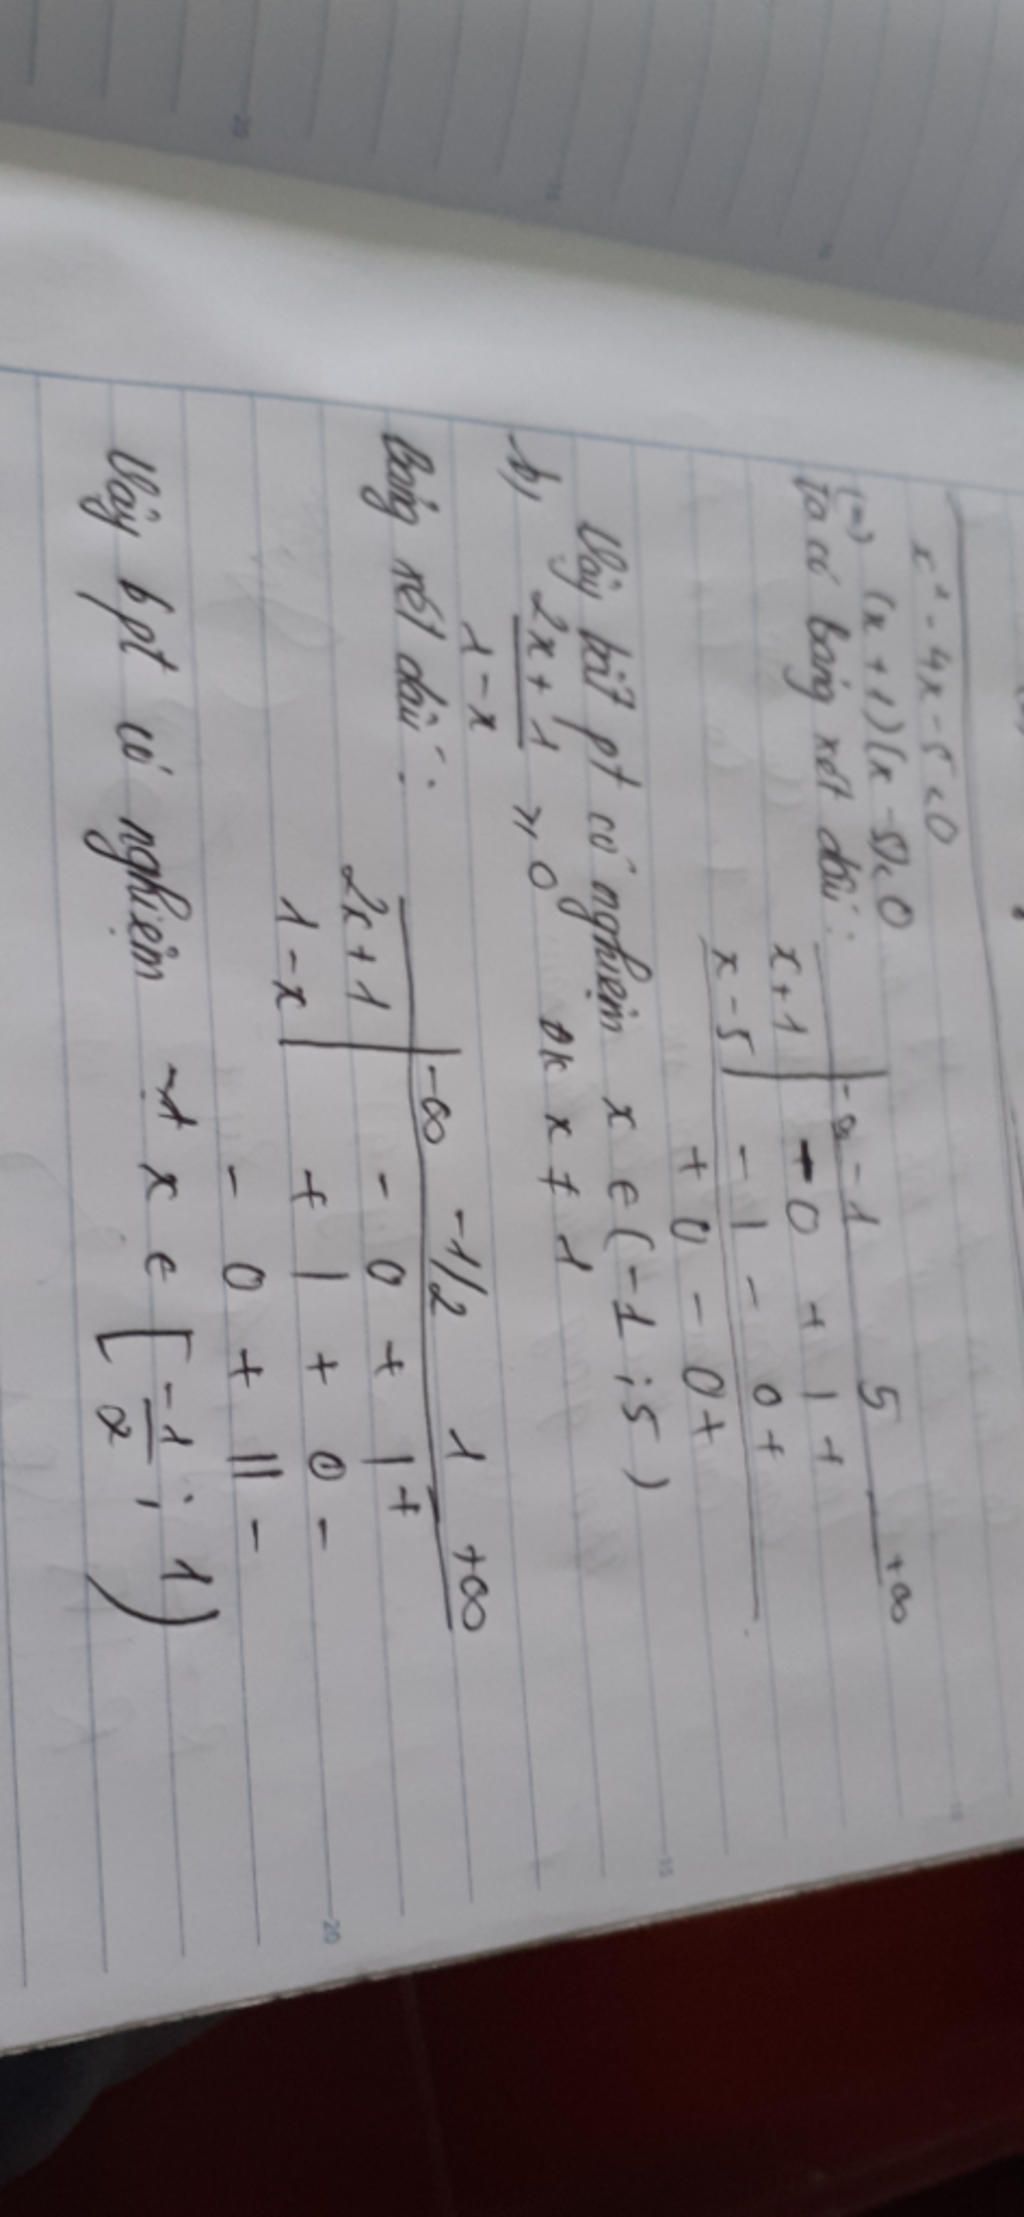 x² - 4x - 5 < 0
(=) (x + 1)(x - 5) < 0
Ta có bảng xét dấu:
-∞ -1 5 +∞
x+1 - 0 + | +
x - 5 - | - 0 +
+ 0 - 0 +
Vậy bất pt có nghiệm x ∈ (-1 ; 5)
b, 2x + 1 / 1 - x ≥ 0 ĐK x ≠ 1
Bảng xét dấu:
-∞ -1/2 1 +∞
2x+1 - 0 + | +
1 - x + | + 0 -
- 0 + || -
Vậy bpt có nghiệm x ∈ [-1/2 ; 1)
20
15
20